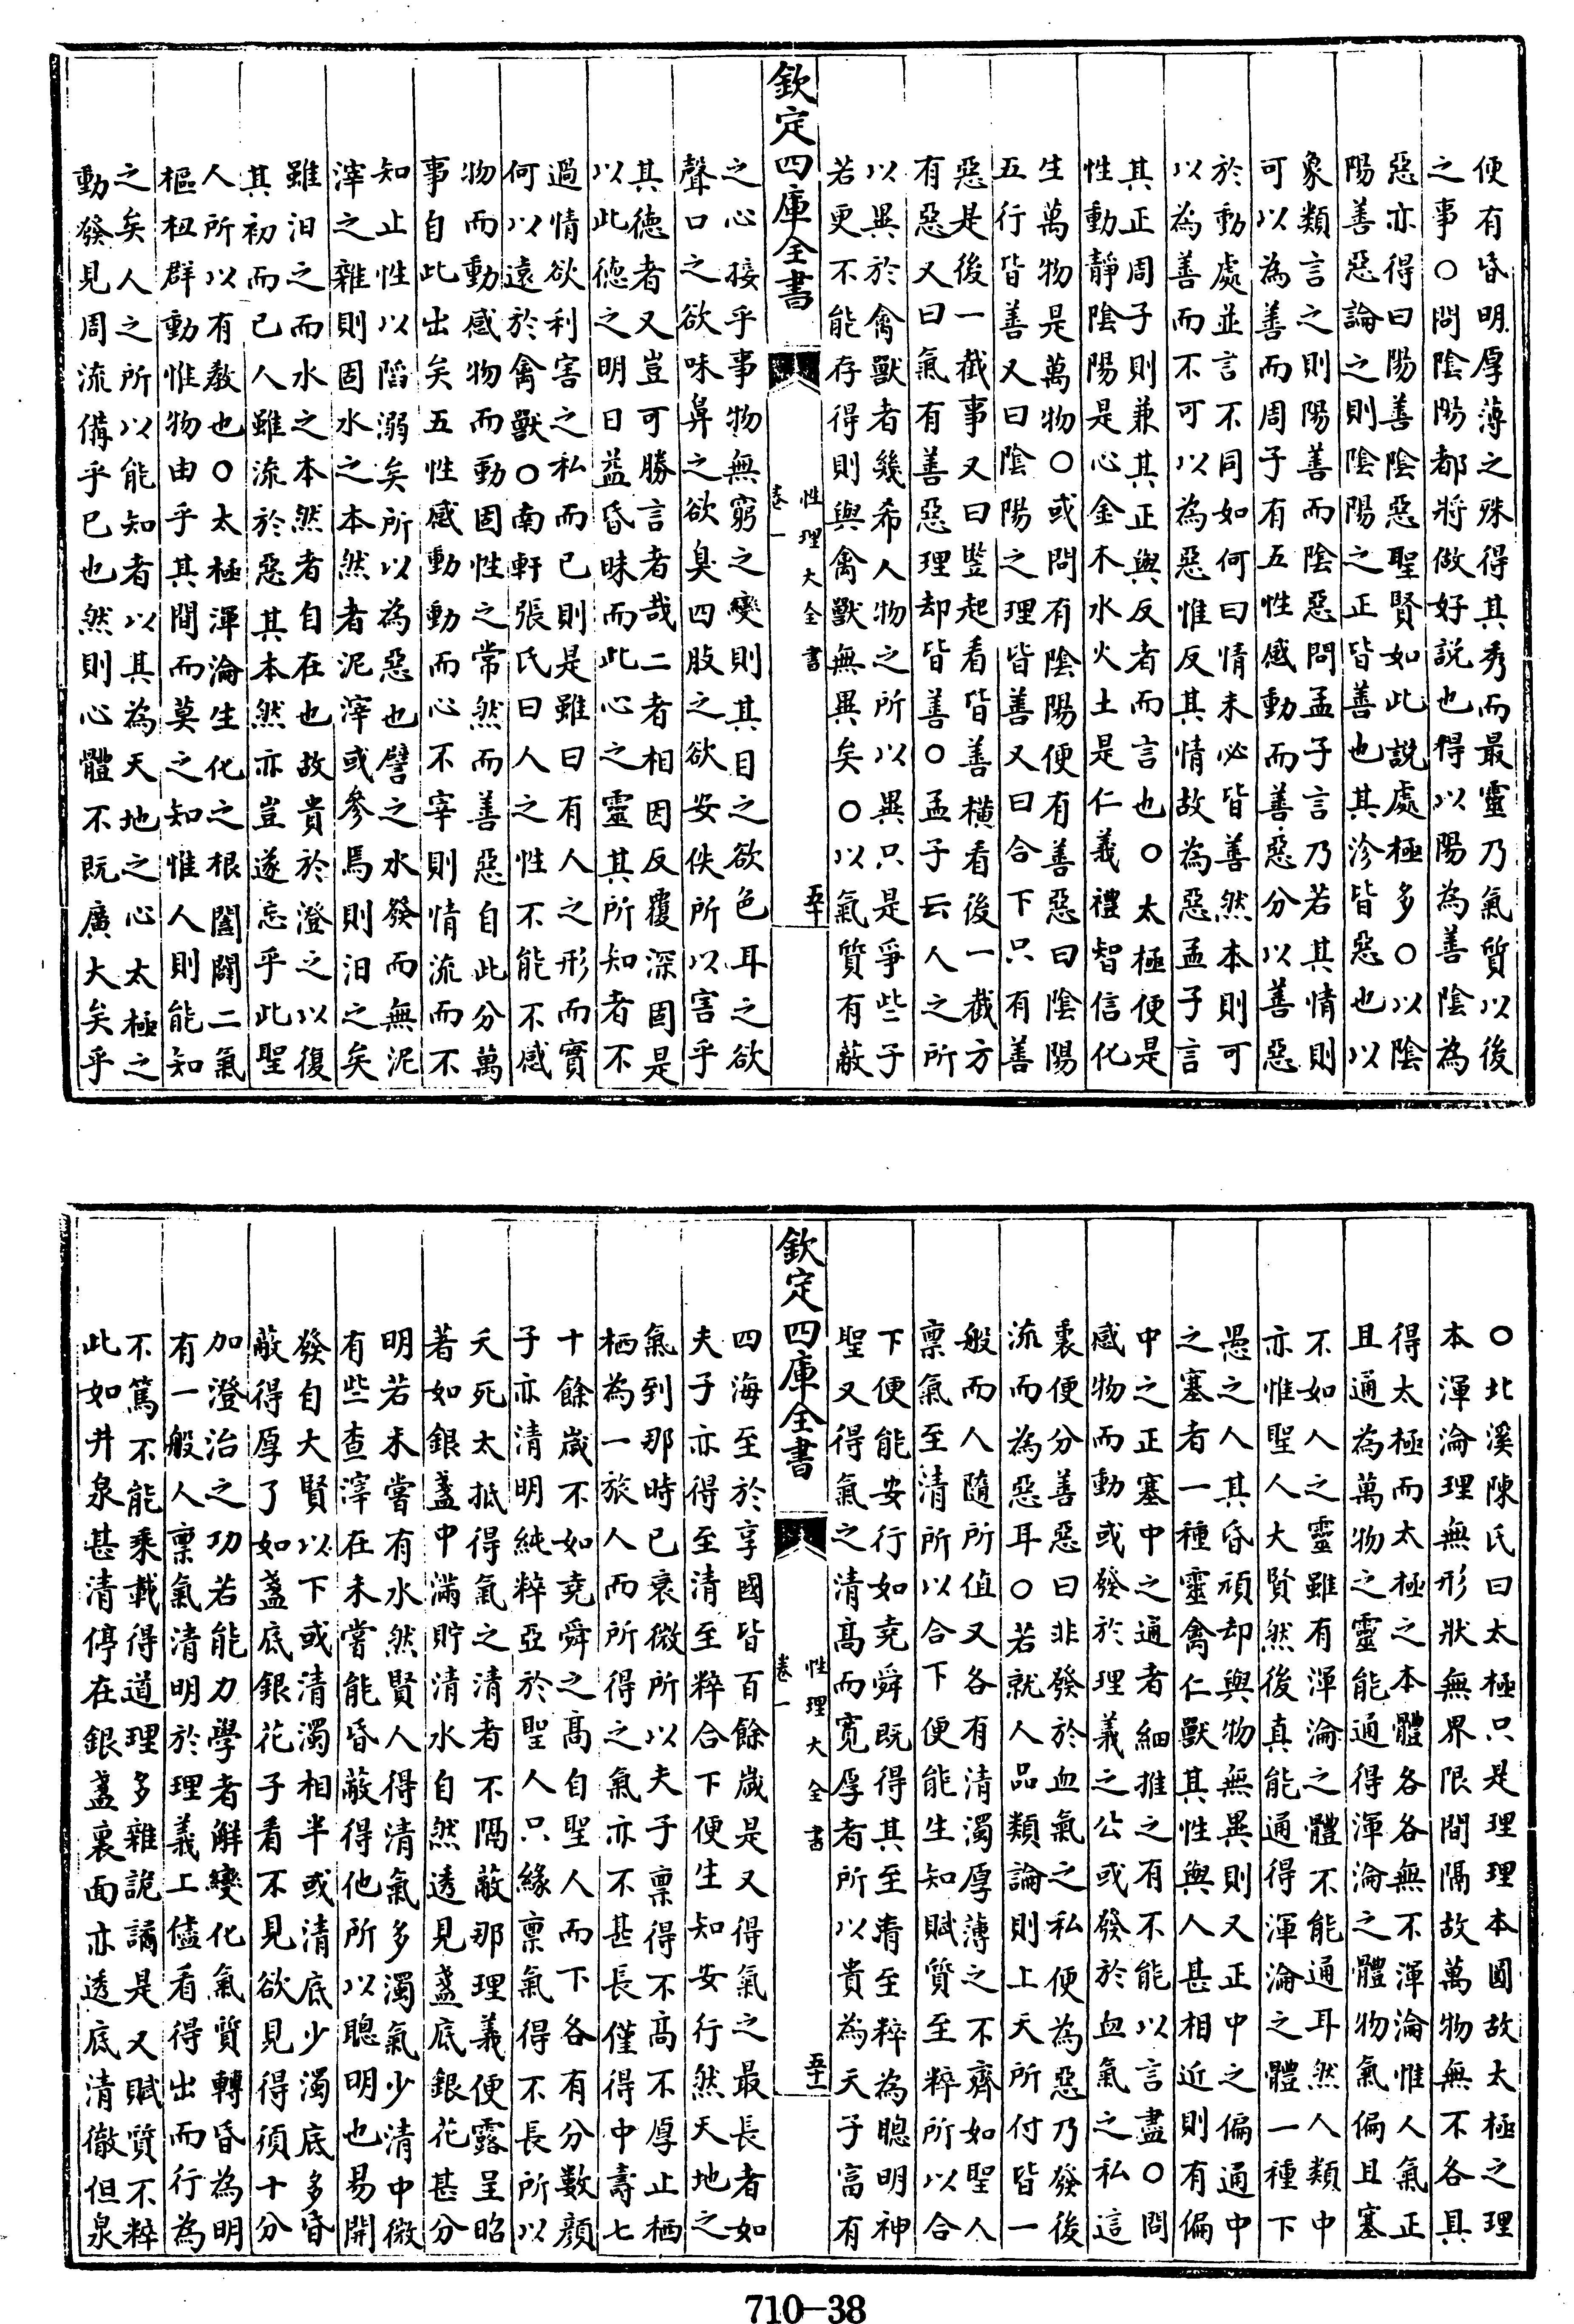 便有昏明厚薄之殊得其秀而最靈乃氣質以後
之事○問陰陽都將做好説也得以陽為善陰為
惡亦得曰陽善陰惡聖賢如此説處極多○以陰
陽善惡論之則陰陽之正皆善也其沴皆惡也以
象類言之則陽善而陰惡問孟子言乃若其情則
可以為善而周子有五性感動而善惡分以善惡
於動處並言不同如何曰情未必皆善然本則可
以為善而不可以為惡惟反其情故為惡孟子言
其正周子則兼其正與反者而言也○太極便是
性動靜陰陽是心金木水火土是仁義禮智信化
生萬物是萬物○或問有陰陽便有善惡曰陰陽
五行皆善又曰陰陽之理皆善又曰合下只有善
惡是後一截事又曰豎起看皆善橫看後一截方
有惡又曰氣有善惡理却皆善○孟子云人之所
以異於禽獸者幾希人物之所以異只是爭些子
若更不能存得則與禽獸無異矣○以氣質有蔽
欽定四庫全書
性理大全書
卷一
五十
之心接乎事物無窮之變則其目之欲色耳之欲
聲口之欲味鼻之欲臭四肢之欲安佚所以害乎
其德者又豈可勝言者哉二者相因反覆深固是
以此德之明日益昏昧而此心之靈其所知者不
過情欲利害之私而已則是雖曰有人之形而實
何以遠於禽獸○南軒張氏曰人之性不能不感
物而動感物而動固性之常然而善惡自此分萬
事自此出矣五性感動動而心不宰則情流而不
知止性以㴞溺矣所以為惡也譬之水發而無泥
滓之雜則固水之本然者泥滓或參焉則汩之矣
雖汩之而水之本然者自在也故貴於澄之以復
其初而已人雖流於惡其本然亦豈遂忘乎此聖
人所以有教也○太極渾淪生化之根闔闢二氣
樞杻群動惟物由乎其間而莫之知惟人則能知
之矣人之所以能知者以其為天地之心太極之
動發見周流備乎已也然則心體不既廣大矣乎
○北溪陳氏曰太極只是理理本圓故太極之理
本渾淪理無形狀無界限間隔故萬物無不各具
得太極而太極之本體各各無不渾淪惟人氣正
且通為萬物之靈能通得渾淪之體物氣偏且塞
不如人之靈雖有渾淪之體不能通耳然人類中
亦惟聖人大賢然後真能通得渾淪之體一種下
愚之人其昏頑却與物無異則又正中之偏通中
之塞者一種靈禽仁獸其性與人甚相近則有偏
中之正塞中之通者細推之有不能以言盡○問
感物而動或發於理義之公或發於血氣之私這
裏便分善惡曰非發於血氣之私便為惡乃發後
流而為惡耳○若就人品類論則上天所付皆一
般而人隨所值又各有清濁厚薄之不齊如聖人
稟氣至清所以合下便能生知賦質至粹所以合
下便能安行如堯舜既得其至清至粹為聰明神
聖又得氣之清高而寬厚者所以貴為天子富有
欽定四庫全書
性理大全書
卷一
五十一
四海至於享國皆百餘歲是又得氣之最長者如
夫子亦得至清至粹合下便生知安行然天地之
氣到那時已衰微所以夫子稟得不高不厚止栖
栖為一旅人而所得之氣亦不甚長僅得中壽七
十餘歲不如堯舜之高自聖人而下各有分數顔
子亦清明純粹亞於聖人只緣稟氣得不長所以
夭死太抵得氣之清者不隔蔽那理義便露呈昭
著如銀盞中滿貯清水自然透見盞底銀花甚分
明若未嘗有水然賢人得清氣多濁氣少清中微
有些查滓在未嘗能昏蔽得他所以聰明也易開
發自大賢以下或清濁相半或清底少濁底多昏
蔽得厚了如盞底銀花子看不見欲見得須十分
加澄治之功若能力學者解變化氣質轉昏為明
有一般人稟氣清明於理義上儘看得出而行為
不篤不能乘載得道理多雜詭譎是又賦質不粹
此如井泉甚清停在銀盞裏面亦透底清徹但泉
710—38